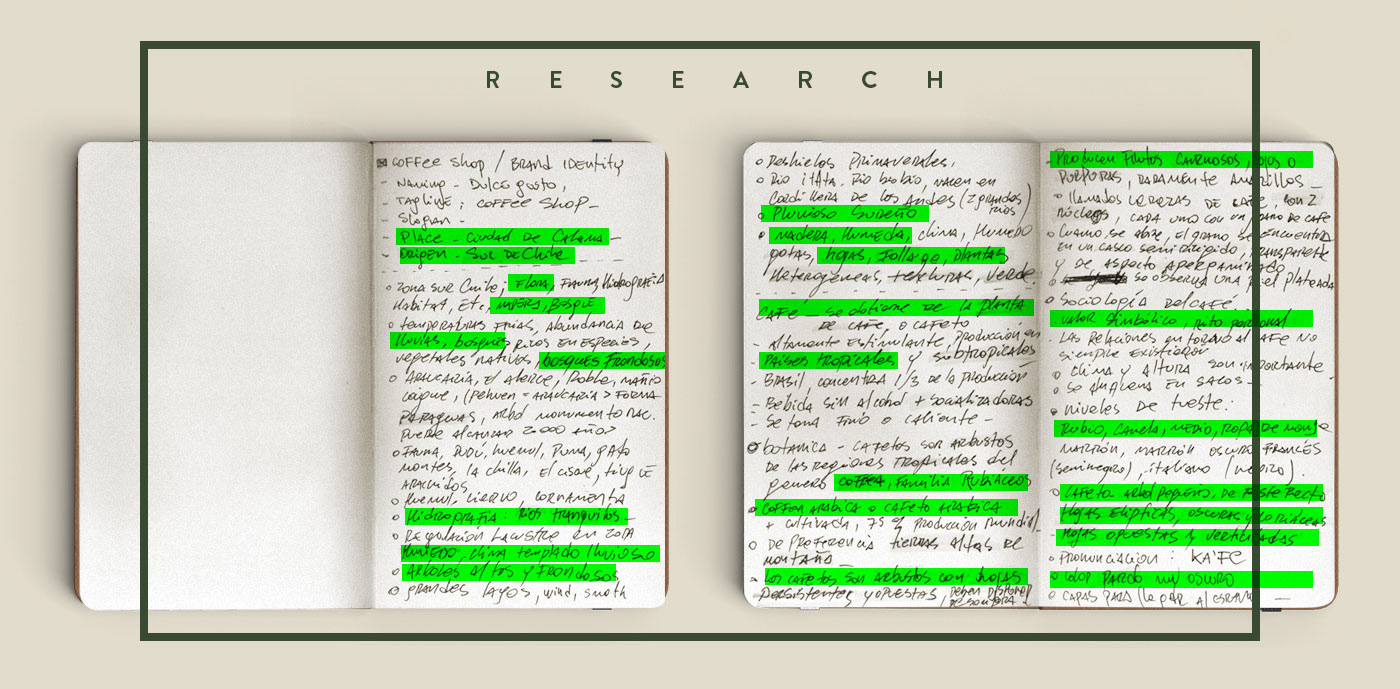 RESEARCH
COFFEE Shop / BRAND IDENTITY
- Naming - Dulce gusto,
- TAGLINE; COFFEE SHOP -
- Slogan -
- Place - Ciudad DE Calama -
- Origen - SUR DE Chile
o zona sur Chile; FLORA, FAUNA, Hidrografía
Habitat, Etc, BOSQUE
o temperaturas FRIAS, Abundancia DE
lluvias, bosques RICOS EN ESPECIES,
vegetales nativos, bosques Frondosos
o ARAUCARIA, El alerce, Roble, mañio
(Pehuen = ARAUCARIA > FORMA
PARAGUAS, arbol monumento NAC.
Puede alcanzar 2000 años
o FAUNA, PUDU, huemul, PUMA, gato
montes, la chilla,
ARACNIDOS
o Huemul, ciervo, cornamenta
o Hidrografia: Rios tranquilos -
o Regulación Lacustre en zona
HUMEDO, clima templado lluvioso
o Arboles Altos y Frondosos
o grandes lagos, wind, south
o Deshielos Primaverales.
o Rio itata. Rio biobio, nacen en
Cordillera DE los Andes (2 grandes
rios)
o Pluvioso Sureño
o MADERA, Humeda, clima, Humedo
gotas, hojas, Follage, plantas
Heterogeneas, texturas, verde.
CAFE - se obtiene DE la planta
DE CAFE, o CAFETO
- Altamente Estimulante, Producción en
PAISES tropicales y subtropicales
- BRASIL, concentra 1/3 de la Producción
- Bebida sin alcohol + socializadoras
- Se toma Frio o caliente -
o botanica - CAFETOS son ARBUSTOS
DE las regiones tropicales del
genero COFFEA, Familia Rubiáceos
o COFFEA ARABICA o CAFETO ARABICA
+ cultivada, 75% Producción mundial
o DE PREFERENCIA tierras Altas DE
montaña -
- Los cafetos son Arbustos con hojas
Persistentes y opuestas,
- Producen Frutos CARNOSOS, ROJOS o
PURPURAS, RARAMENTE AMARILLOS -
o llamados CEREZAS DE CAFE, con 2
núcleos, cada uno con un grano de cafe
o Cuando se abre, el grano se encuentra
EN un casco semirigido, transparente
y DE ASPECTO APERGAMINADO
o se observa una piel plateada
o Sociología del CAFE.
Valor Simbólico, rito personal
- LAS Relaciones en torno al CAFE NO
siempre Existieron
o clima y Altura son importante
o Se Almacena EN SACOS -
o niveles De tueste:
RUBIO, Canela, MEDIO, ROPA DE MONJE
MARRON, MARRON OSCURO FRANCÉS
(seminegro), italiano (negro).
o CAFETO arbol pequeño, DE
HOJAS Elipticas, oscuras y coriáceas
- Hojas opuestas y verticiladas
o Pronunciacion: KA'FE
o Color PARDO muy oscuro